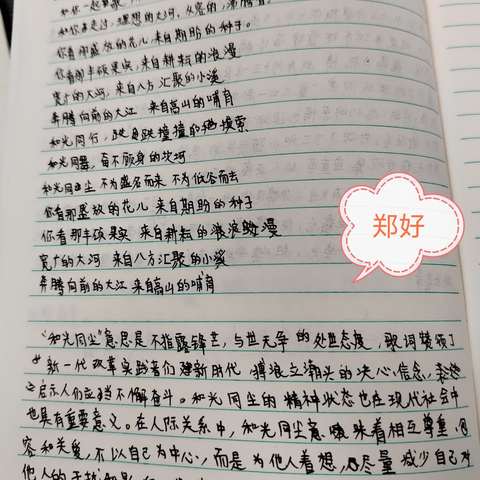 和你一起
和你走过，理想的大河，从容的，沸腾
你看那盛放的花儿，来自期盼的种子
你看那丰硕果实，来自耕耘的浪漫
宽广的大河，来自八方汇聚的小溪
奔腾向前的大江 来自高山的哺育
和光同行，跌跌撞撞的摸索
和光同尘，奋不顾身的坎坷
和光同尘 不为盛名而来 不为低谷而去
你看那盛放的花儿 来自期盼的种子
你看那丰硕果实 来自耕耘的浪漫
宽广的大河 来自八方汇聚的小溪
奔腾向前的大江 来自高山的哺育
郑好
"和光同尘"意思是不指露锋芒，与世无争的处世态度，歌词赞颂了
新一代改革实践者们建新时代，搏浪立潮头的决心、信念，
启示人们应当不懈奋斗。和光同尘的精神状态也在现代社会中
也具有重要意义。在人际关系中，和光同尘意味着相互尊重、
容和关爱，不以自己为中心，而是为他人着想，尽量减少自己对
他人的